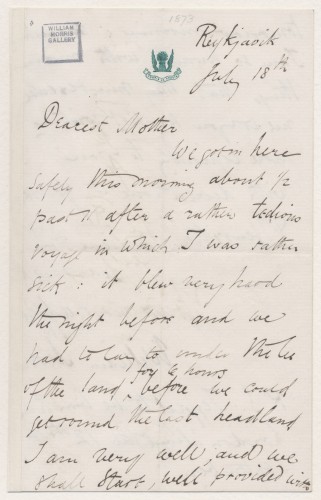 WILLIAM
MORRIS
GALLERY
1873
Reykjavik
July 18th
Dearest Mother
We got in here
safely this morning about 1/2
past 11 after a rather tedious
voyage in which I was rather
sick: it blew very hard
the night before and we
had to lay to under the lee
for 6 hours
of the land, before we could
get round the last headland
I am very well, and we
shall start, well provided with